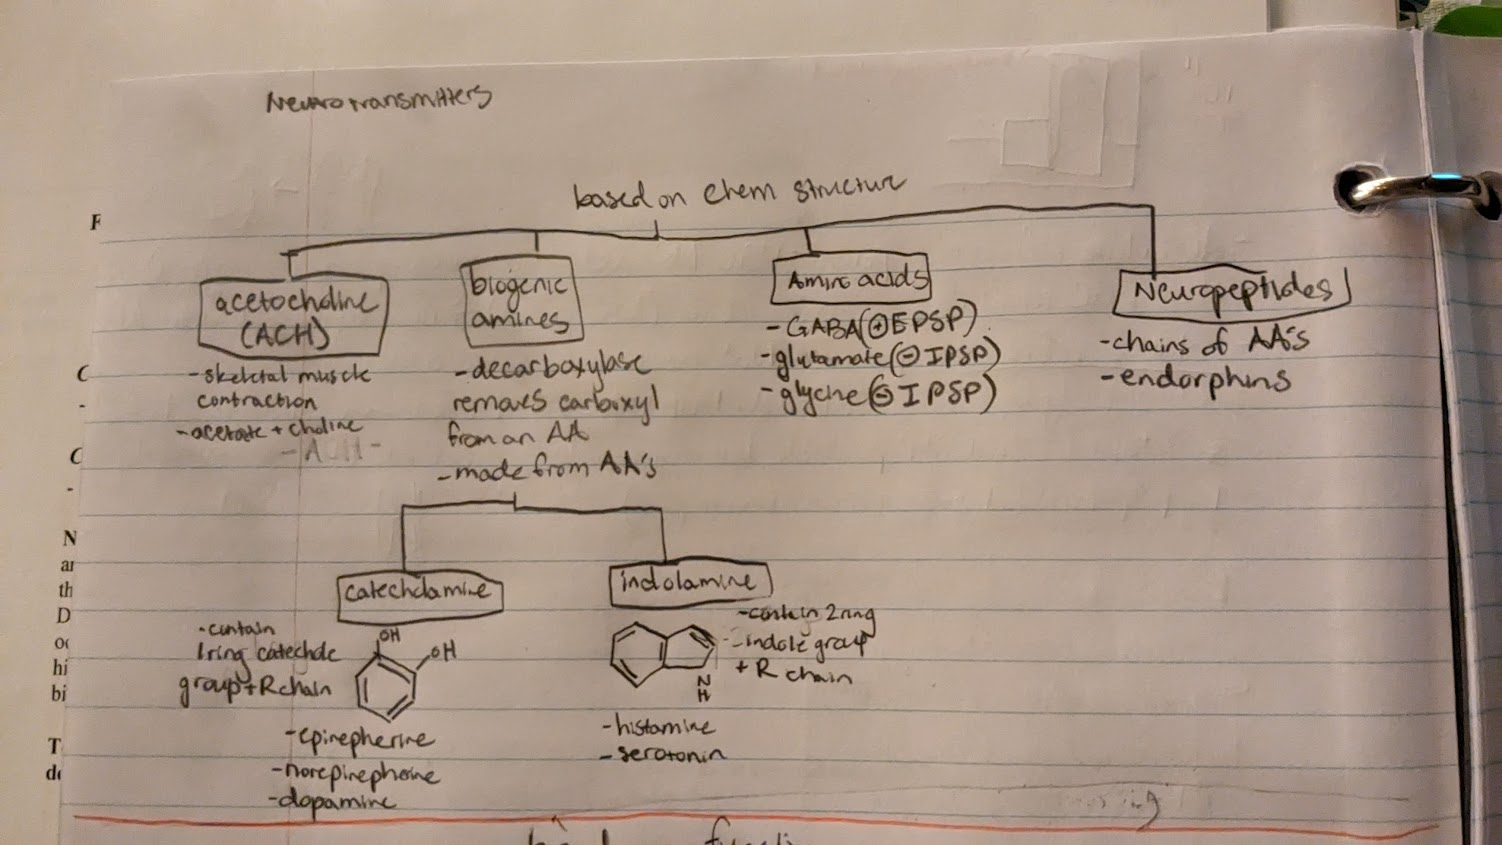 Neurotransmitters
based on chem structure
acetocholine
(ACH)
-skeletal muscle
contraction
-acetate + choline
-ACH-
biogenic
amines
-decarboxylase
removes carboxyl
from an AA
-made from AA's
Amino acids
-GABA(⊕EPSP)
-glutamate(⊖IPSP)
-glycine(⊖IPSP)
Neuropeptides
-chains of AA's
-endorphins
catecholamine
-contain
1 ring catechole
group+R chain
OH
OH
-epinepherine
-norepinepherine
-dopamine
indolamine
-contain 2 ring
-indole group
+ R chain
N
H
-histamine
-serotonin
F
C
-
C
-
N
an
th
D
oc
hi
bi
T
de